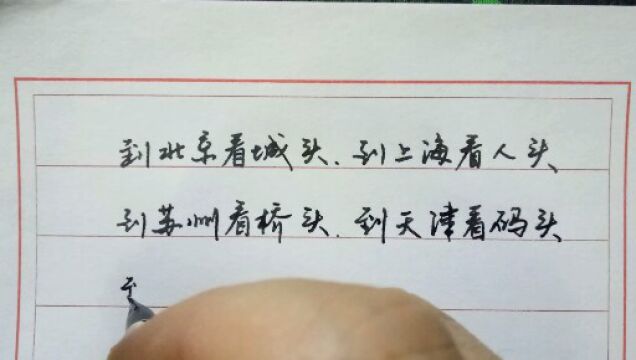 到北京看城头、到上海看人头
到苏州看桥头、到天津看码头